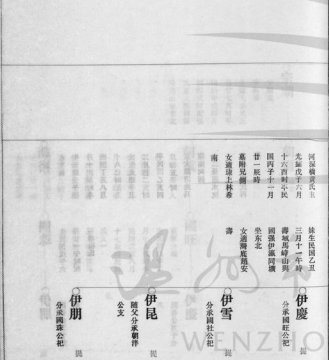 河深橋黃氏生
光緒戊子六月
十六酉时卒民
国丙子十一月
廿一辰時
墓附兄側
女適康上林希
南
妹生民国乙丑
三月十一午時
壽域馬𡶶山與
国强伊瀛同壙
坐东北
女適灣底趙安
壽
伊慶
分承國旺公祀
伊雪
分承國社公祀
伊昆
随父分承朝洋
公支
伊朋
分承國珠公祀
温州
WENZHO